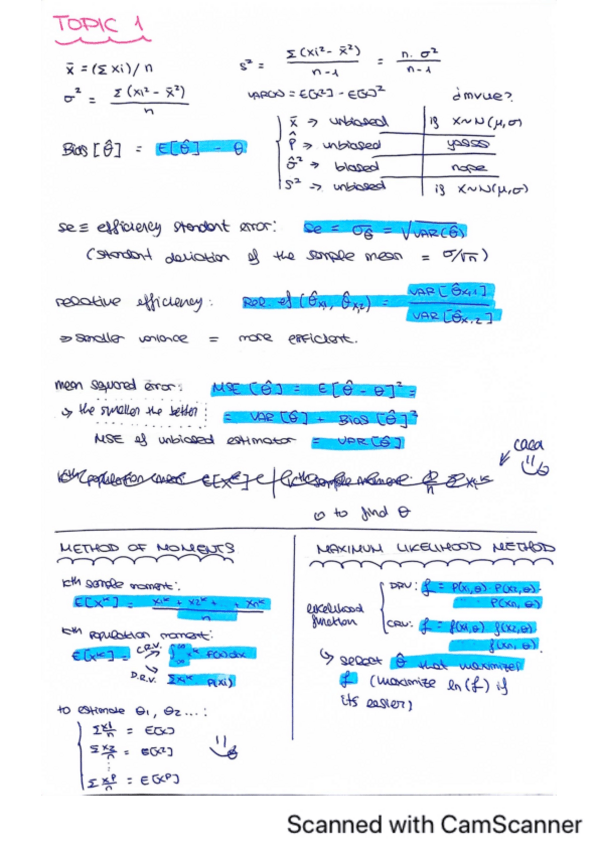 TOPIC 1
x̄ = (Σ xi) / n
s² = Σ (xi² - x̄²) / n-1 = n · σ² / n-1
σ² = Σ (xi² - x̄²) / n
VAR(x) = E[x²] - E[x]²
¿mvue?
Bias [θ̂] = E[θ̂] - θ
x̄ → unbiased if x~N(μ,σ)
p̂ → unbiased yasss
σ̂² → biased nope
s² → unbiased if x~N(μ,σ)
se ≡ efficiency standard error: se = σθ̂ = √VAR(θ̂)
(standard deviation of the sample mean = σ/√n)
relative efficiency: Rel. ef (θ̂x,1, θ̂x,2) = VAR[θ̂x,1] / VAR[θ̂x,2]
⇒ smaller variance = more efficient.
mean squared error: MSE [θ̂] = E[θ̂ - θ]² =
→ the smaller the better = VAR[θ̂] + Bias[θ̂]²
MSE of unbiased estimator = VAR[θ̂]
caca
to find θ
METHOD OF MOMENTS
kth sample moment:
E[xᵏ] = x1ᵏ + x2ᵏ + ... + xnᵏ / n
kth population moment:
E[xᵏ] = C.R.V. ∫ xᵏ f(x) dx
D.R.V. Σ xiᵏ P(xi)
to estimate θ1, θ2 ... :
Σ x1/n = E[x]
Σ x2/n = E[x²]
⋮
Σ xᵖ/n = E[xᵖ]
MAXIMUM LIKELIHOOD METHOD
likelihood function
DRV: L = P(x1,θ) · P(x2,θ) ·
· P(xn, θ)
CRV: L = f(x1,θ) f(x2,θ)
f(xn, θ)
↳ select θ̂ that maximizes
L (maximize ln(L) if
its easier)
Scanned with CamScanner